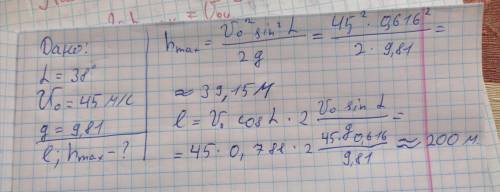 Дано:
L = 38°
V₀ = 45 м/с
g = 9,81
l; hmax - ?
hmax = V₀² sin² L / 2g = 45² · 0,616² / 2 · 9,81 =
≈ 39,15 м
l = V₀ cos L · 2 V₀ sin L / g =
= 45 · 0,788 · 2 45 · 0,616 / 9,81 ≈ 200 м